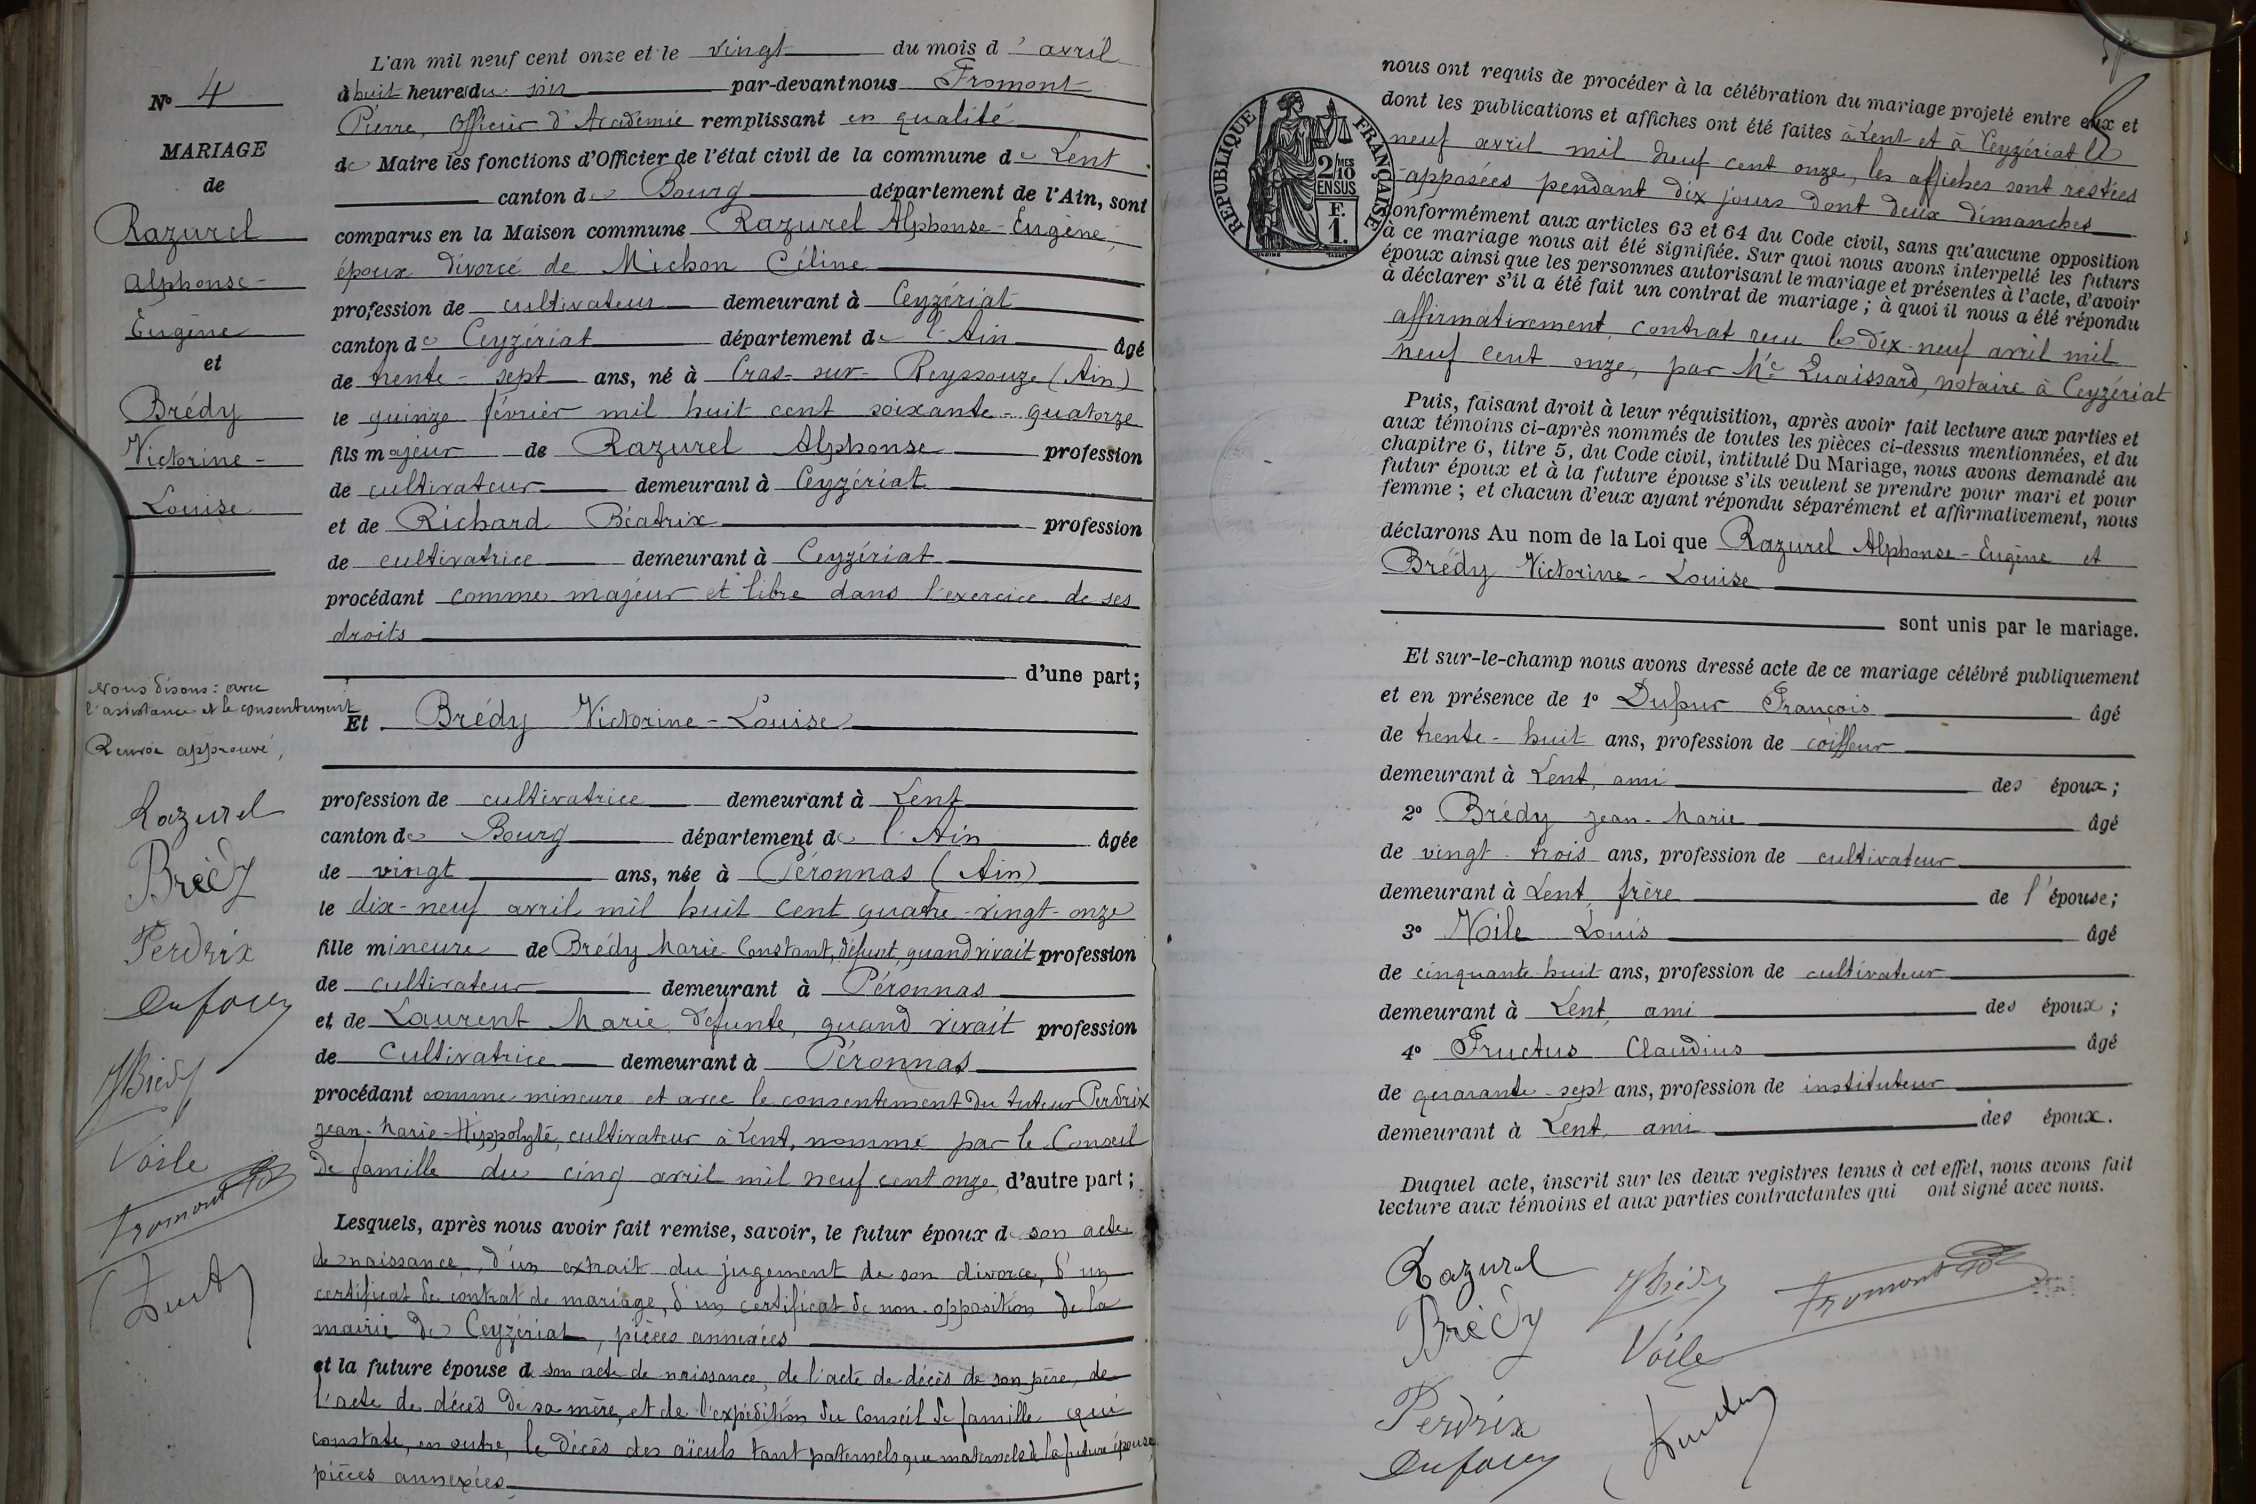 L'an mil neuf cent onze et le vingt du mois d'avril
à huit heures du soir par-devant nous Fromont
Pierre, Officier d'Académie remplissant en qualité
de Maire les fonctions d'Officier de l'état civil de la commune de Lent
canton de Bourg département de l'Ain, sont
comparus en la Maison commune Razurel Alphonse-Eugène,
époux divorcé de Michon Céline
profession de cultivateur demeurant à Ceyzériat
canton de Ceyzériat département de l'Ain âgé
de trente-sept ans, né à Cras-sur-Reyssouze (Ain)
le quinze février mil huit cent soixante-quatorze
fils majeur de Razurel Alphonse profession
de cultivateur demeurant à Ceyzériat
et de Richard Béatrix profession
de cultivatrice demeurant à Ceyzériat
procédant comme majeur et libre dans l'exercice de ses
droits
d'une part;
Et Brédy Victorine-Louise
profession de cultivatrice demeurant à Lent
canton de Bourg département de l'Ain âgée
de vingt ans, née à Péronnas (Ain)
le dix-neuf avril mil huit cent quatre-vingt-onze
fille mineure de Brédy Marie-Constant, défunt, quand vivait profession
de cultivateur demeurant à Péronnas
et de Laurent Marie, défunte, quand vivait profession
de cultivatrice demeurant à Péronnas
procédant comme mineure et avec le consentement du tuteur Perdrix
Jean-Marie-Hippolyte, cultivateur à Lent, nommé par le Conseil
de famille du cinq avril mil neuf cent onze, d'autre part;
Lesquels, après nous avoir fait remise, savoir, le futur époux de son acte
de naissance, d'un extrait du jugement de son divorce, d'un
certificat de contrat de mariage, d'un certificat de non-opposition de la
mairie de Ceyzériat, pièces annexées
et la future épouse de son acte de naissance, de l'acte de décès de son père, de
l'acte de décès de sa mère, et de l'expédition du Conseil de famille qui
constate, en outre, le décès des aïeuls tant paternels que maternels de la future épouse,
pièces annexées
N° 4
MARIAGE
de
Razurel
Alphonse-
Eugène
et
Brédy
Victorine-
Louise
Nous disons: avec
l'assistance et le consentement
Renvoi approuvé,
Razurel
Brédy
Perdrix
Dufour
JBrédy
Voile
Fromont
nous ont requis de procéder à la célébration du mariage projeté entre eux et
dont les publications et affiches ont été faites à Lent et à Ceyzériat le
neuf avril mil neuf cent onze, les affiches sont restées
apposées pendant dix jours dont deux dimanches
conformément aux articles 63 et 64 du Code civil, sans qu'aucune opposition
à ce mariage nous ait été signifiée. Sur quoi nous avons interpellé les futurs
époux ainsi que les personnes autorisant le mariage et présentes à l'acte, d'avoir
à déclarer s'il a été fait un contrat de mariage; à quoi il nous a été répondu
affirmativement, contrat reçu le dix-neuf avril mil
neuf cent onze, par Me Quaissard, notaire à Ceyzériat
Puis, faisant droit à leur réquisition, après avoir fait lecture aux parties et
aux témoins ci-après nommés de toutes les pièces ci-dessus mentionnées, et du
chapitre 6, titre 5, du Code civil, intitulé Du Mariage, nous avons demandé au
futur époux et à la future épouse s'ils veulent se prendre pour mari et pour
femme; et chacun d'eux ayant répondu séparément et affirmativement, nous
déclarons Au nom de la Loi que Razurel Alphonse-Eugène et
Brédy Victorine-Louise
sont unis par le mariage.
Et sur-le-champ nous avons dressé acte de ce mariage célébré publiquement
et en présence de 1° Dufour François âgé
de trente-huit ans, profession de coiffeur
demeurant à Lent, ami des époux;
2° Brédy Jean-Marie âgé
de vingt-trois ans, profession de cultivateur
demeurant à Lent, frère de l'épouse;
3° Voile Louis âgé
de cinquante-huit ans, profession de cultivateur
demeurant à Lent, ami des époux;
4° Fructus Claudius âgé
de quarante-sept ans, profession de instituteur
demeurant à Lent, ami des époux.
Duquel acte, inscrit sur les deux registres tenus à cet effet, nous avons fait
lecture aux témoins et aux parties contractantes qui ont signé avec nous.
Razurel
Brédy
Perdrix
Dufour
JBrédy
Voile
Fromont
RÉPUBLIQUE FRANÇAISE
2/10 MES
EN SUS
F.
1.